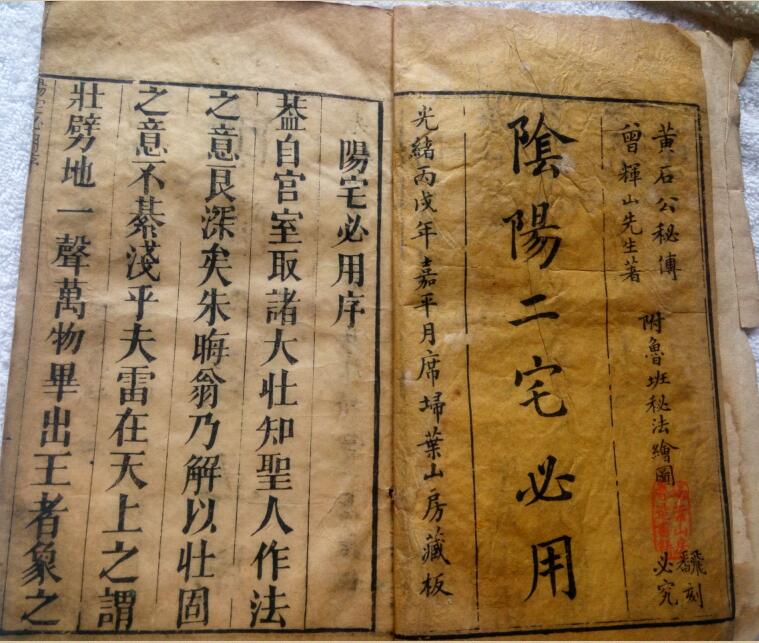 黃石公秘傳
曾輝山先生著
附魯班秘法繪圖
飜刻
必究
陰陽二宅必用
光緒丙戌年嘉平月席埽葉山房藏板
陽宅必用序
葢自官室取諸大壯知聖人作法
之意艮深矣朱晦翁乃解以壯固
之意不綦淺乎夫雷在天上之謂
壯劈地一聲萬物畢出王者象之